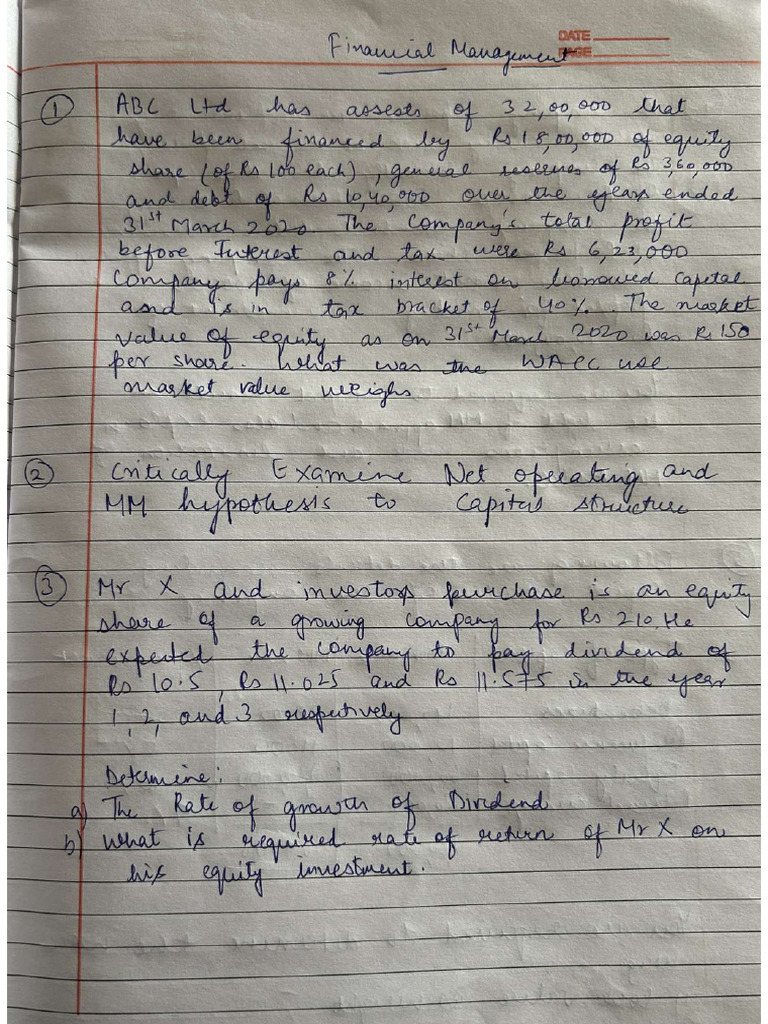 DATE
PAGE
Financial Management
① ABC Ltd has assests of 32,00,000 that
have been financed by Rs 18,00,000 of equity
share (of Rs 100 each), general reserves of Rs 3,60,000
and debt of Rs 10,40,000 over the years ended
31st March 2020. The Company's total profit
before Interest and tax were Rs 6,23,000
Company pays 8% interest on borrowed capital
and is in tax bracket of 40%. The market
value of equity as on 31st March 2020 was Rs 150
per share. What was the WACC use
market value weighs
② Critically Examine Net operating and
MM hypothesis to Capital structure
③ Mr X and investors purchase is an equity
share of a growing company for Rs 210. He
expected the company to pay dividend of
Rs 10.5, Rs 11.025 and Rs 11.575 in the year
1, 2, and 3 respectively
Determine:
a) The Rate of growth of Dividend
b) What is required rate of return of Mr X on
his equity investment.